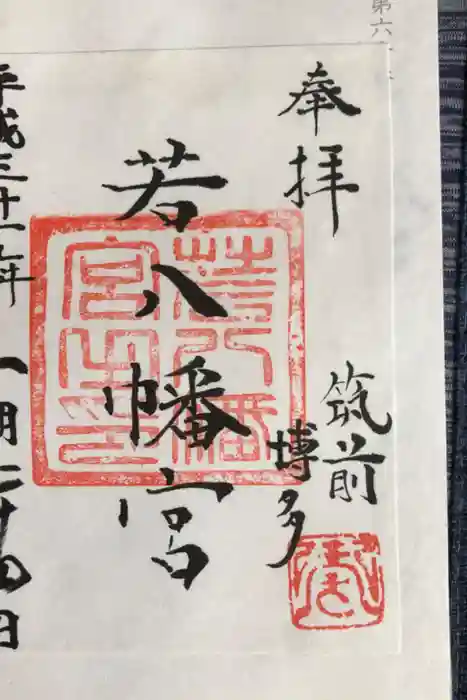 第六
奉拝
筑前
博多
若八幡宮
若八幡宮之印
平成三十一年一月二十四日